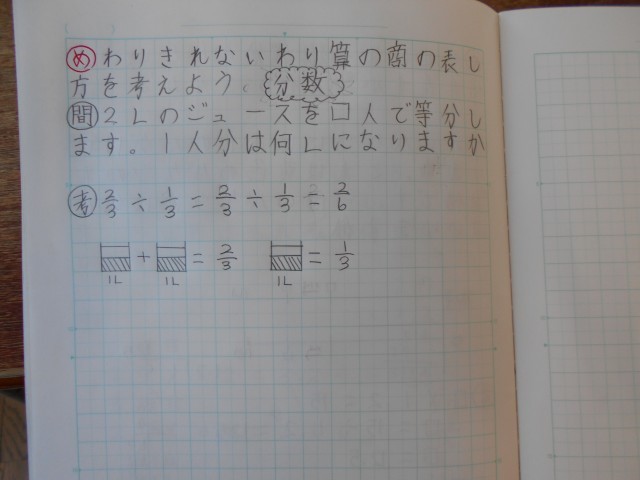 め わりきれないわり算の商の表し
方を考えよう。 分数
問 2Lのジュースを□人で等分し
ます。1人分は何Lになりますか
考 2/3 ÷ 1/3 = 2/3 ÷ 1/3 = 2/6
+ = 2/3 = 1/3
1L 1L 1L